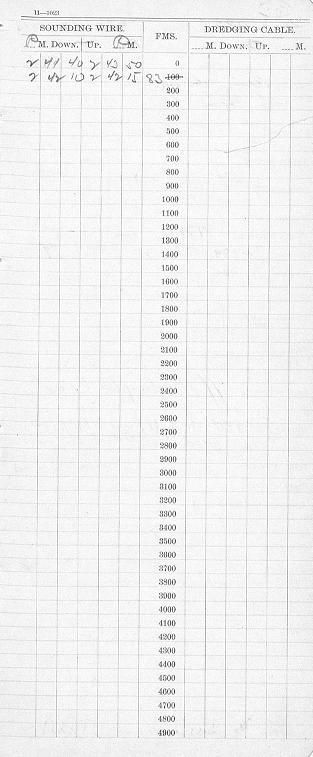 11—1023
SOUNDING WIRE. FMS. DREDGING CABLE.
P. M. DOWN. UP. P. M. .... M. DOWN. UP. .... M.
2 41 40 2 43 50 0
2 42 10 2 42 15 83 100
200
300
400
500
600
700
800
900
1000
1100
1200
1300
1400
1500
1600
1700
1800
1900
2000
2100
2200
2300
2400
2500
2600
2700
2800
2900
3000
3100
3200
3300
3400
3500
3600
3700
3800
3900
4000
4100
4200
4300
4400
4500
4600
4700
4800
4900